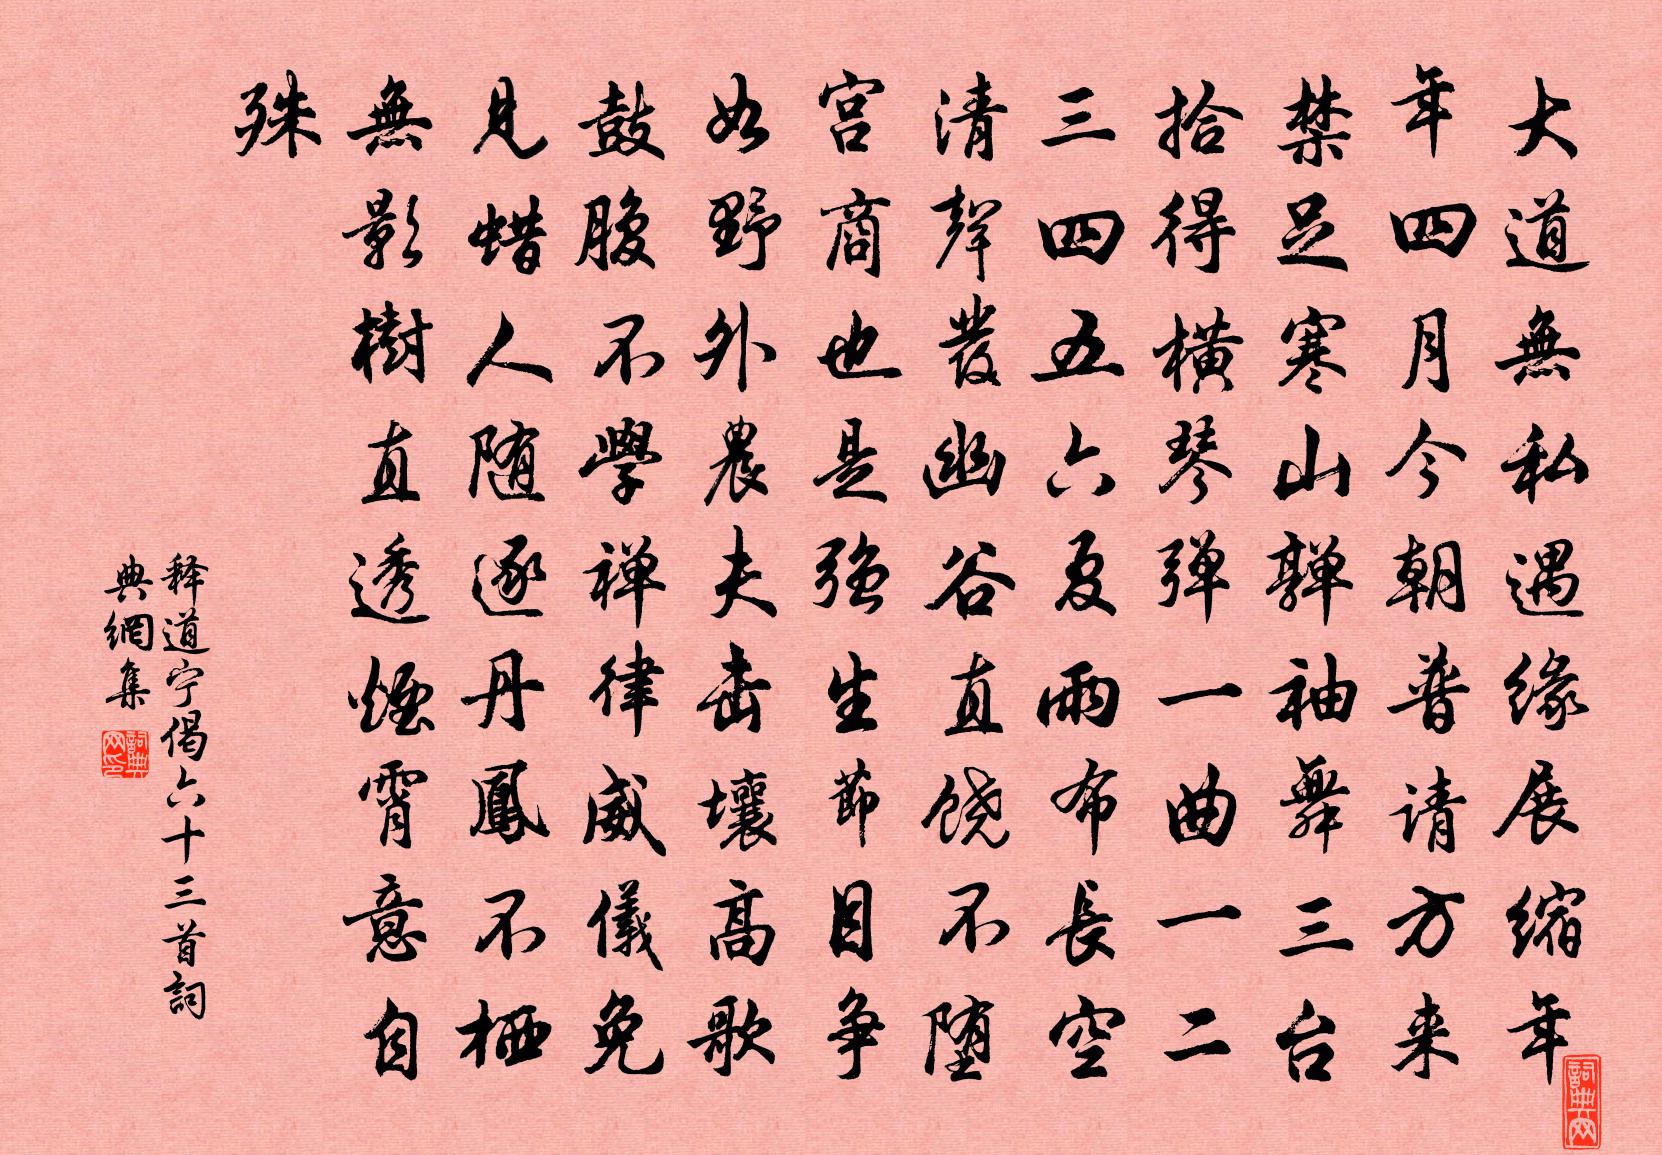 大道無私遇缘展縮年
年四月今朝普请方来
禁足寒山嚲袖舞三台
拾得横琴弹一曲一二
三四五六夏雨布長空
清聲發幽谷直饶不堕
宫商也是强生節目争
如野外農夫击壤高歌
鼓腹不學禅律威儀免
見蜡人随逐丹鳳不栖
無影樹直透煙霄意自
殊
释道宁偈六十三首詞
典網集
詞典网印
詞典网